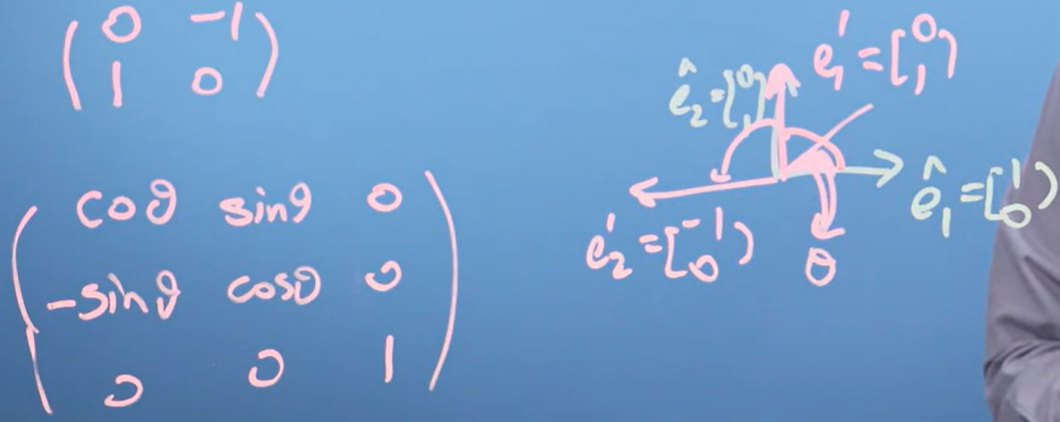 ( 0 -1 )
( 1 0 )
( coθ sinθ 0 )
( -sinθ cosθ 0 )
( 0 0 1 )
e₁' = [0 1)
ê₂ = [0 1)
ê₁ = [1 0)
e₂' = [-1 0)
θ